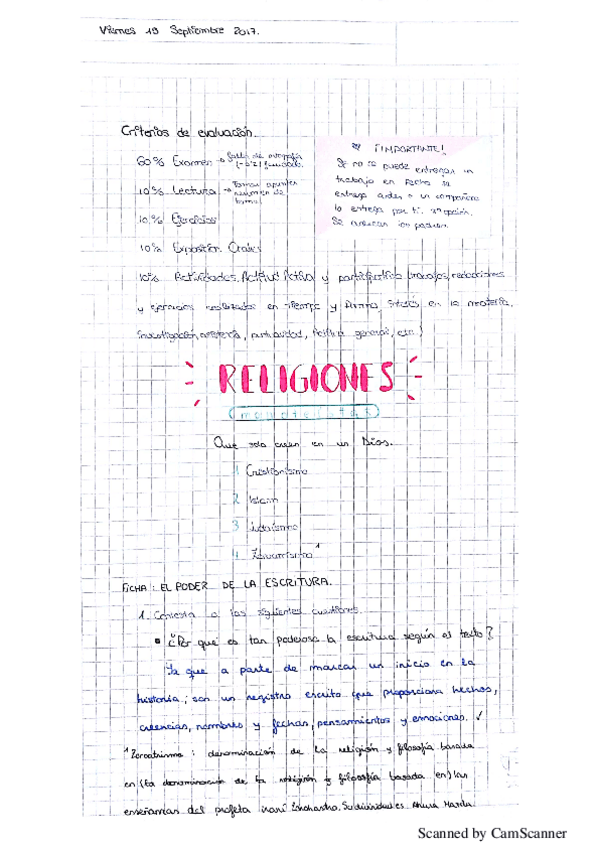 Viernes 19 Septiembre 2017.
Criterios de evaluación.
60% Examen → faltas de ortografía
10% Lectura → Tomar apuntes
resumen de
10% Ejercicios
10% Exposición Orales
10% Actividades, Actitud Activa y participativa trabajos, redacciones
y ejercicios realizados en tiempo y forma, interés en la materia,
investigación, asistencia, puntualidad, actitud general, etc)
¡IMPORTANTE!
Si no se puede entregar un
trabajo en fecha se
entrega antes o un compañero
lo entrega por ti.
RELIGIONES
(monoteístas)
Que solo creen en un Dios.
1 Cristianismo
2 Islam
3 Judaísmo
4 Zoroastrismo¹
FICHA: EL PODER DE LA ESCRITURA.
1. Contesta a las siguientes cuestiones.
• ¿Por qué es tan poderosa la escritura según el texto?
Ya que a parte de marcar un inicio en la
historia, son un registro escrito que proporciona hechos,
creencias, nombres y fechas, pensamientos y emociones. ✓
denominación de la religión y filosofía basada
en (la denominación de la religión y filosofía basada en) las
enseñanzas del profeta iraní Su divinidad es Ahura Mazda
Scanned by CamScanner